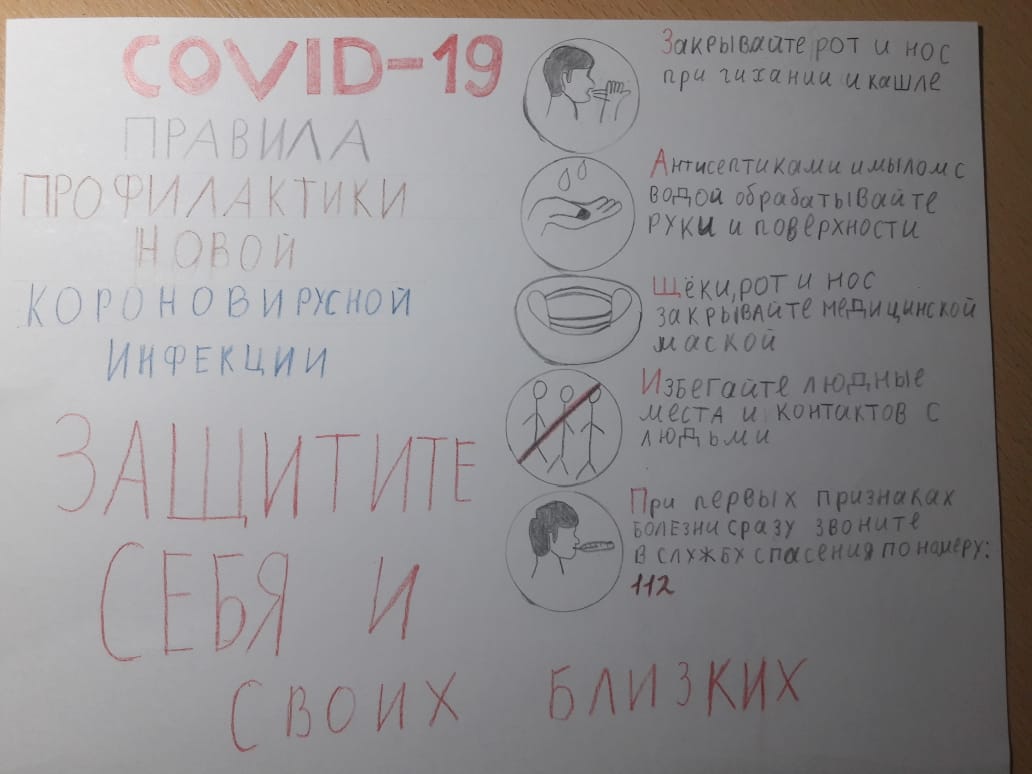 COVID-19
ПРАВИЛА
ПРОФИЛАКТИКИ
НОВОЙ
КОРОНОВИРУСНОЙ
ИНФЕКЦИИ
ЗАЩИТИТЕ
СЕБЯ И
СВОИХ БЛИЗКИХ
Закрывайте рот и нос
при чихании и кашле
Антисептиками и мылом с
водой обрабатывайте
руки и поверхности
Щёки, рот и нос
закрывайте медицинской
маской
Избегайте людные
места и контактов с
людьми
При первых признаках
болезни сразу звоните
в службу спасения по номеру:
112